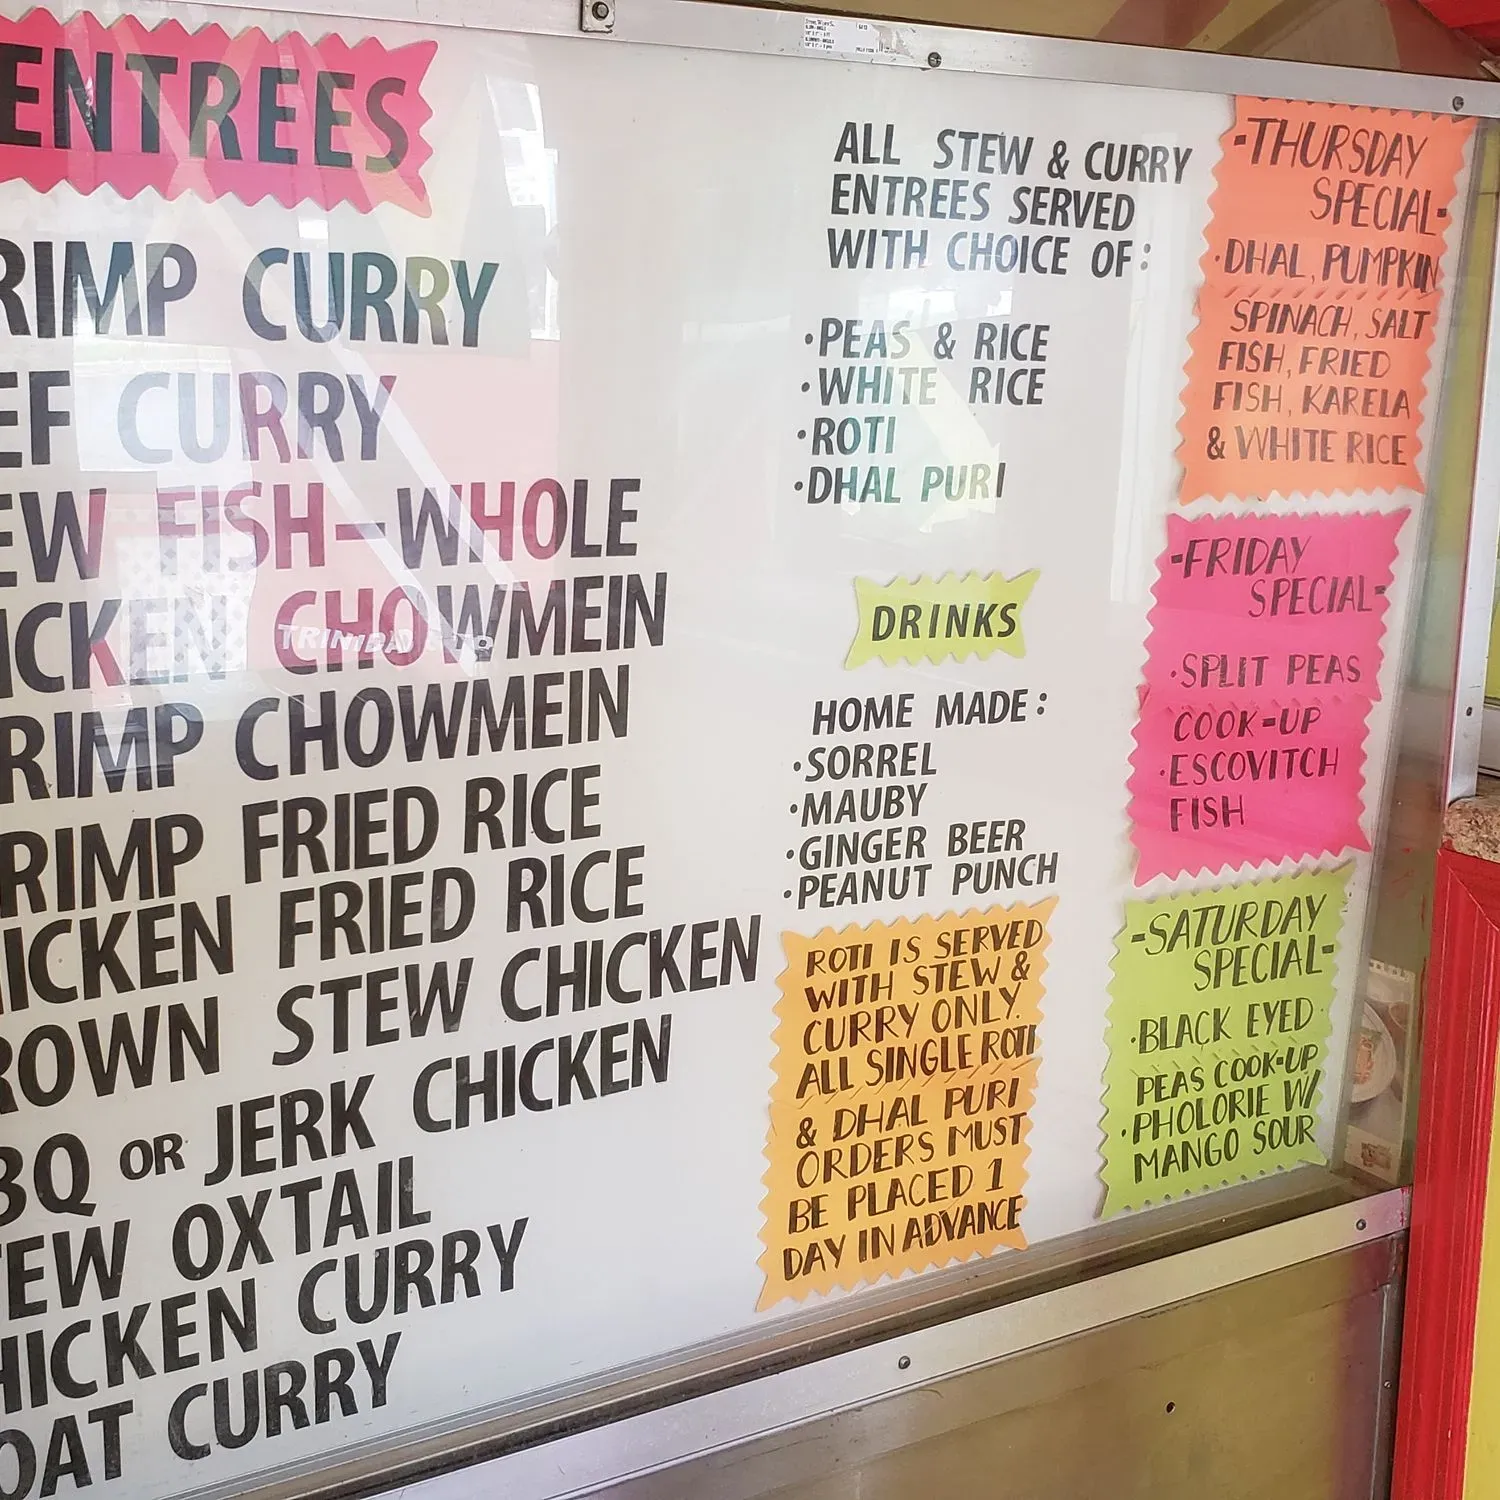 ENTREES
RIMP CURRY
EF CURRY
EW FISH-WHOLE
ICKEN CHOWMEIN
RIMP CHOWMEIN
RIMP FRIED RICE
HICKEN FRIED RICE
ROWN STEW CHICKEN
BQ OR JERK CHICKEN
TEW OXTAIL
HICKEN CURRY
OAT CURRY
ALL STEW & CURRY
ENTREES SERVED
WITH CHOICE OF:
•PEAS & RICE
•WHITE RICE
•ROTI
•DHAL PURI
DRINKS
HOME MADE:
•SORREL
•MAUBY
•GINGER BEER
•PEANUT PUNCH
ROTI IS SERVED
WITH STEW &
CURRY ONLY.
ALL SINGLE ROTI
& DHAL PURI
ORDERS MUST
BE PLACED 1
DAY IN ADVANCE
-THURSDAY
SPECIAL-
•DHAL, PUMPKIN
SPINACH, SALT
FISH, FRIED
FISH, KARELA
& WHITE RICE
-FRIDAY
SPECIAL-
•SPLIT PEAS
COOK-UP
•ESCOVITCH
FISH
-SATURDAY
SPECIAL-
•BLACK EYED
PEAS COOK-UP
•PHOLORIE W/
MANGO SOUR